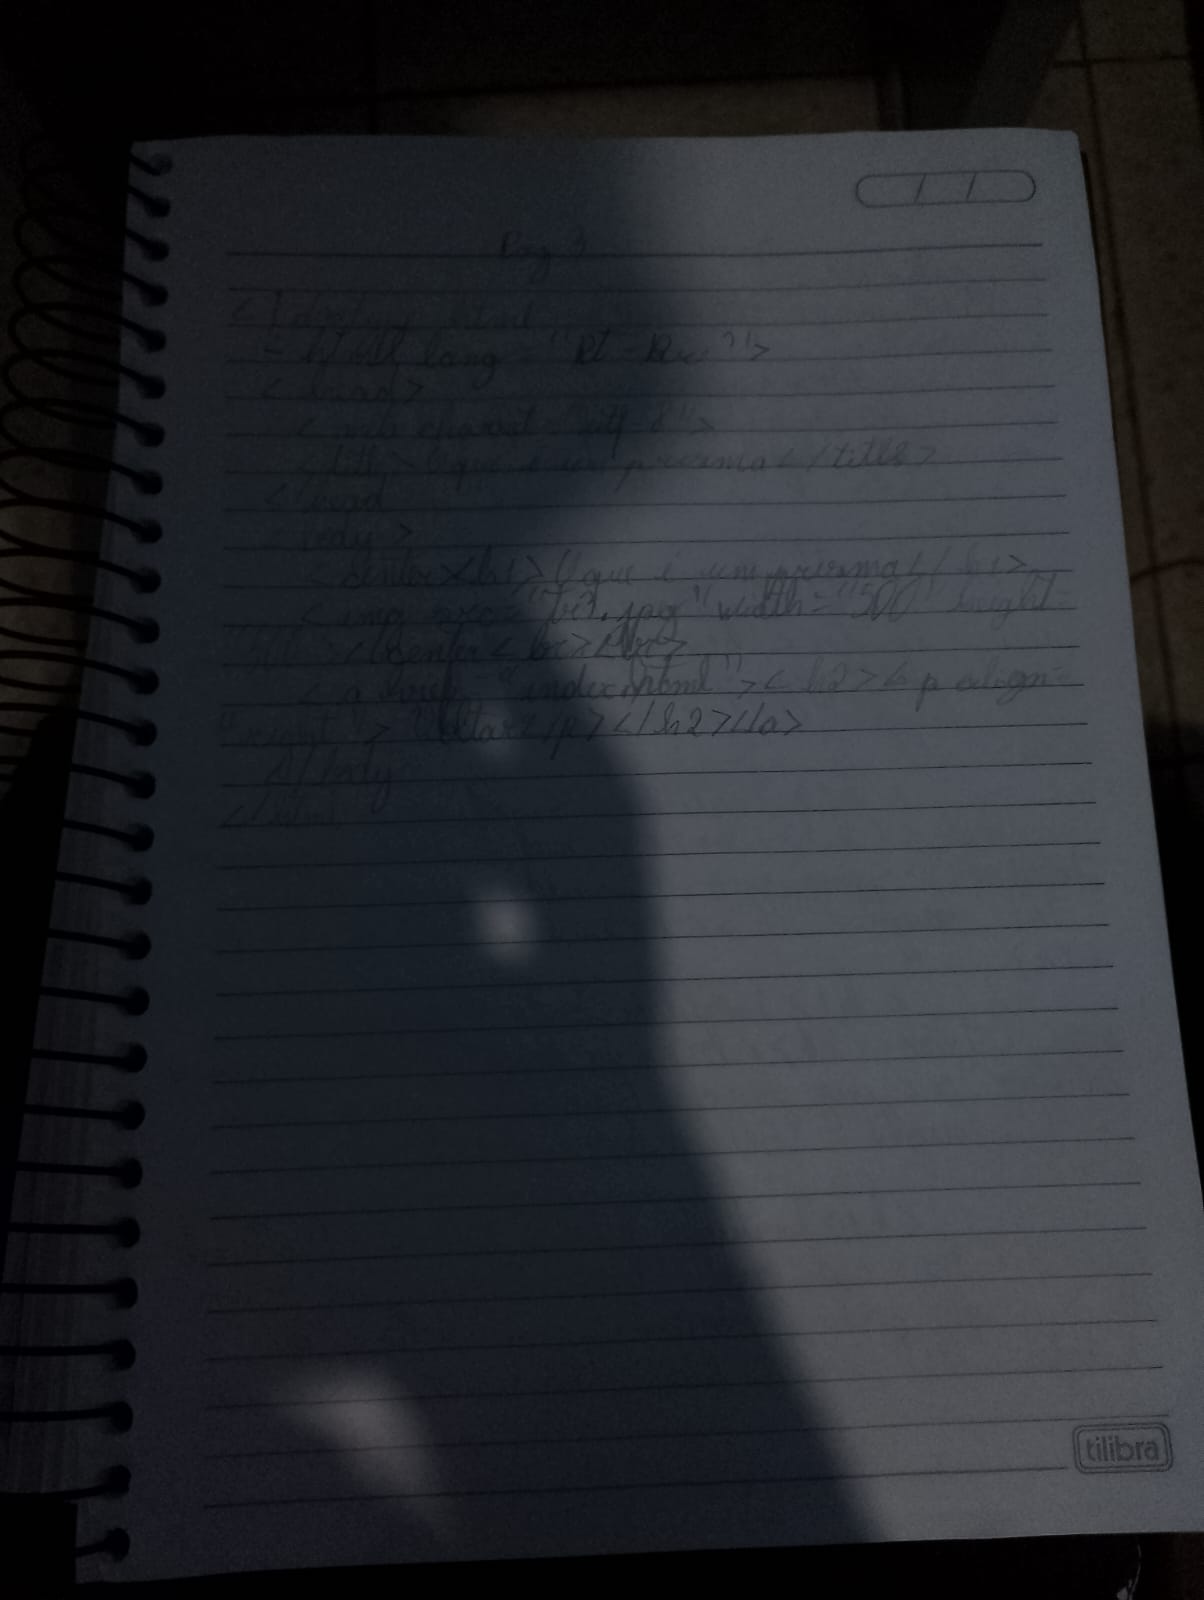 Pag 3
<!doctype html
- html lang = "Pt - Br">
<head>
< meta charset = "utf-8">
< title> O que é um prisma </title>
</head
body >
<center><h1> O que é um prisma </h1>
< img src = "tr3.jpg" width="500" height=
"500" ></center <br><br>
< a href = "index.html" >< h2><p align=
"right"> Voltar</p></h2></a>
</body
</html
tilibra